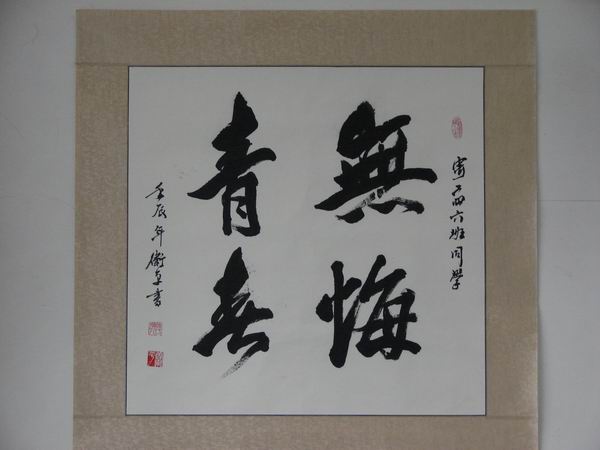 寄六班同學
無悔
青春
壬辰年衛書